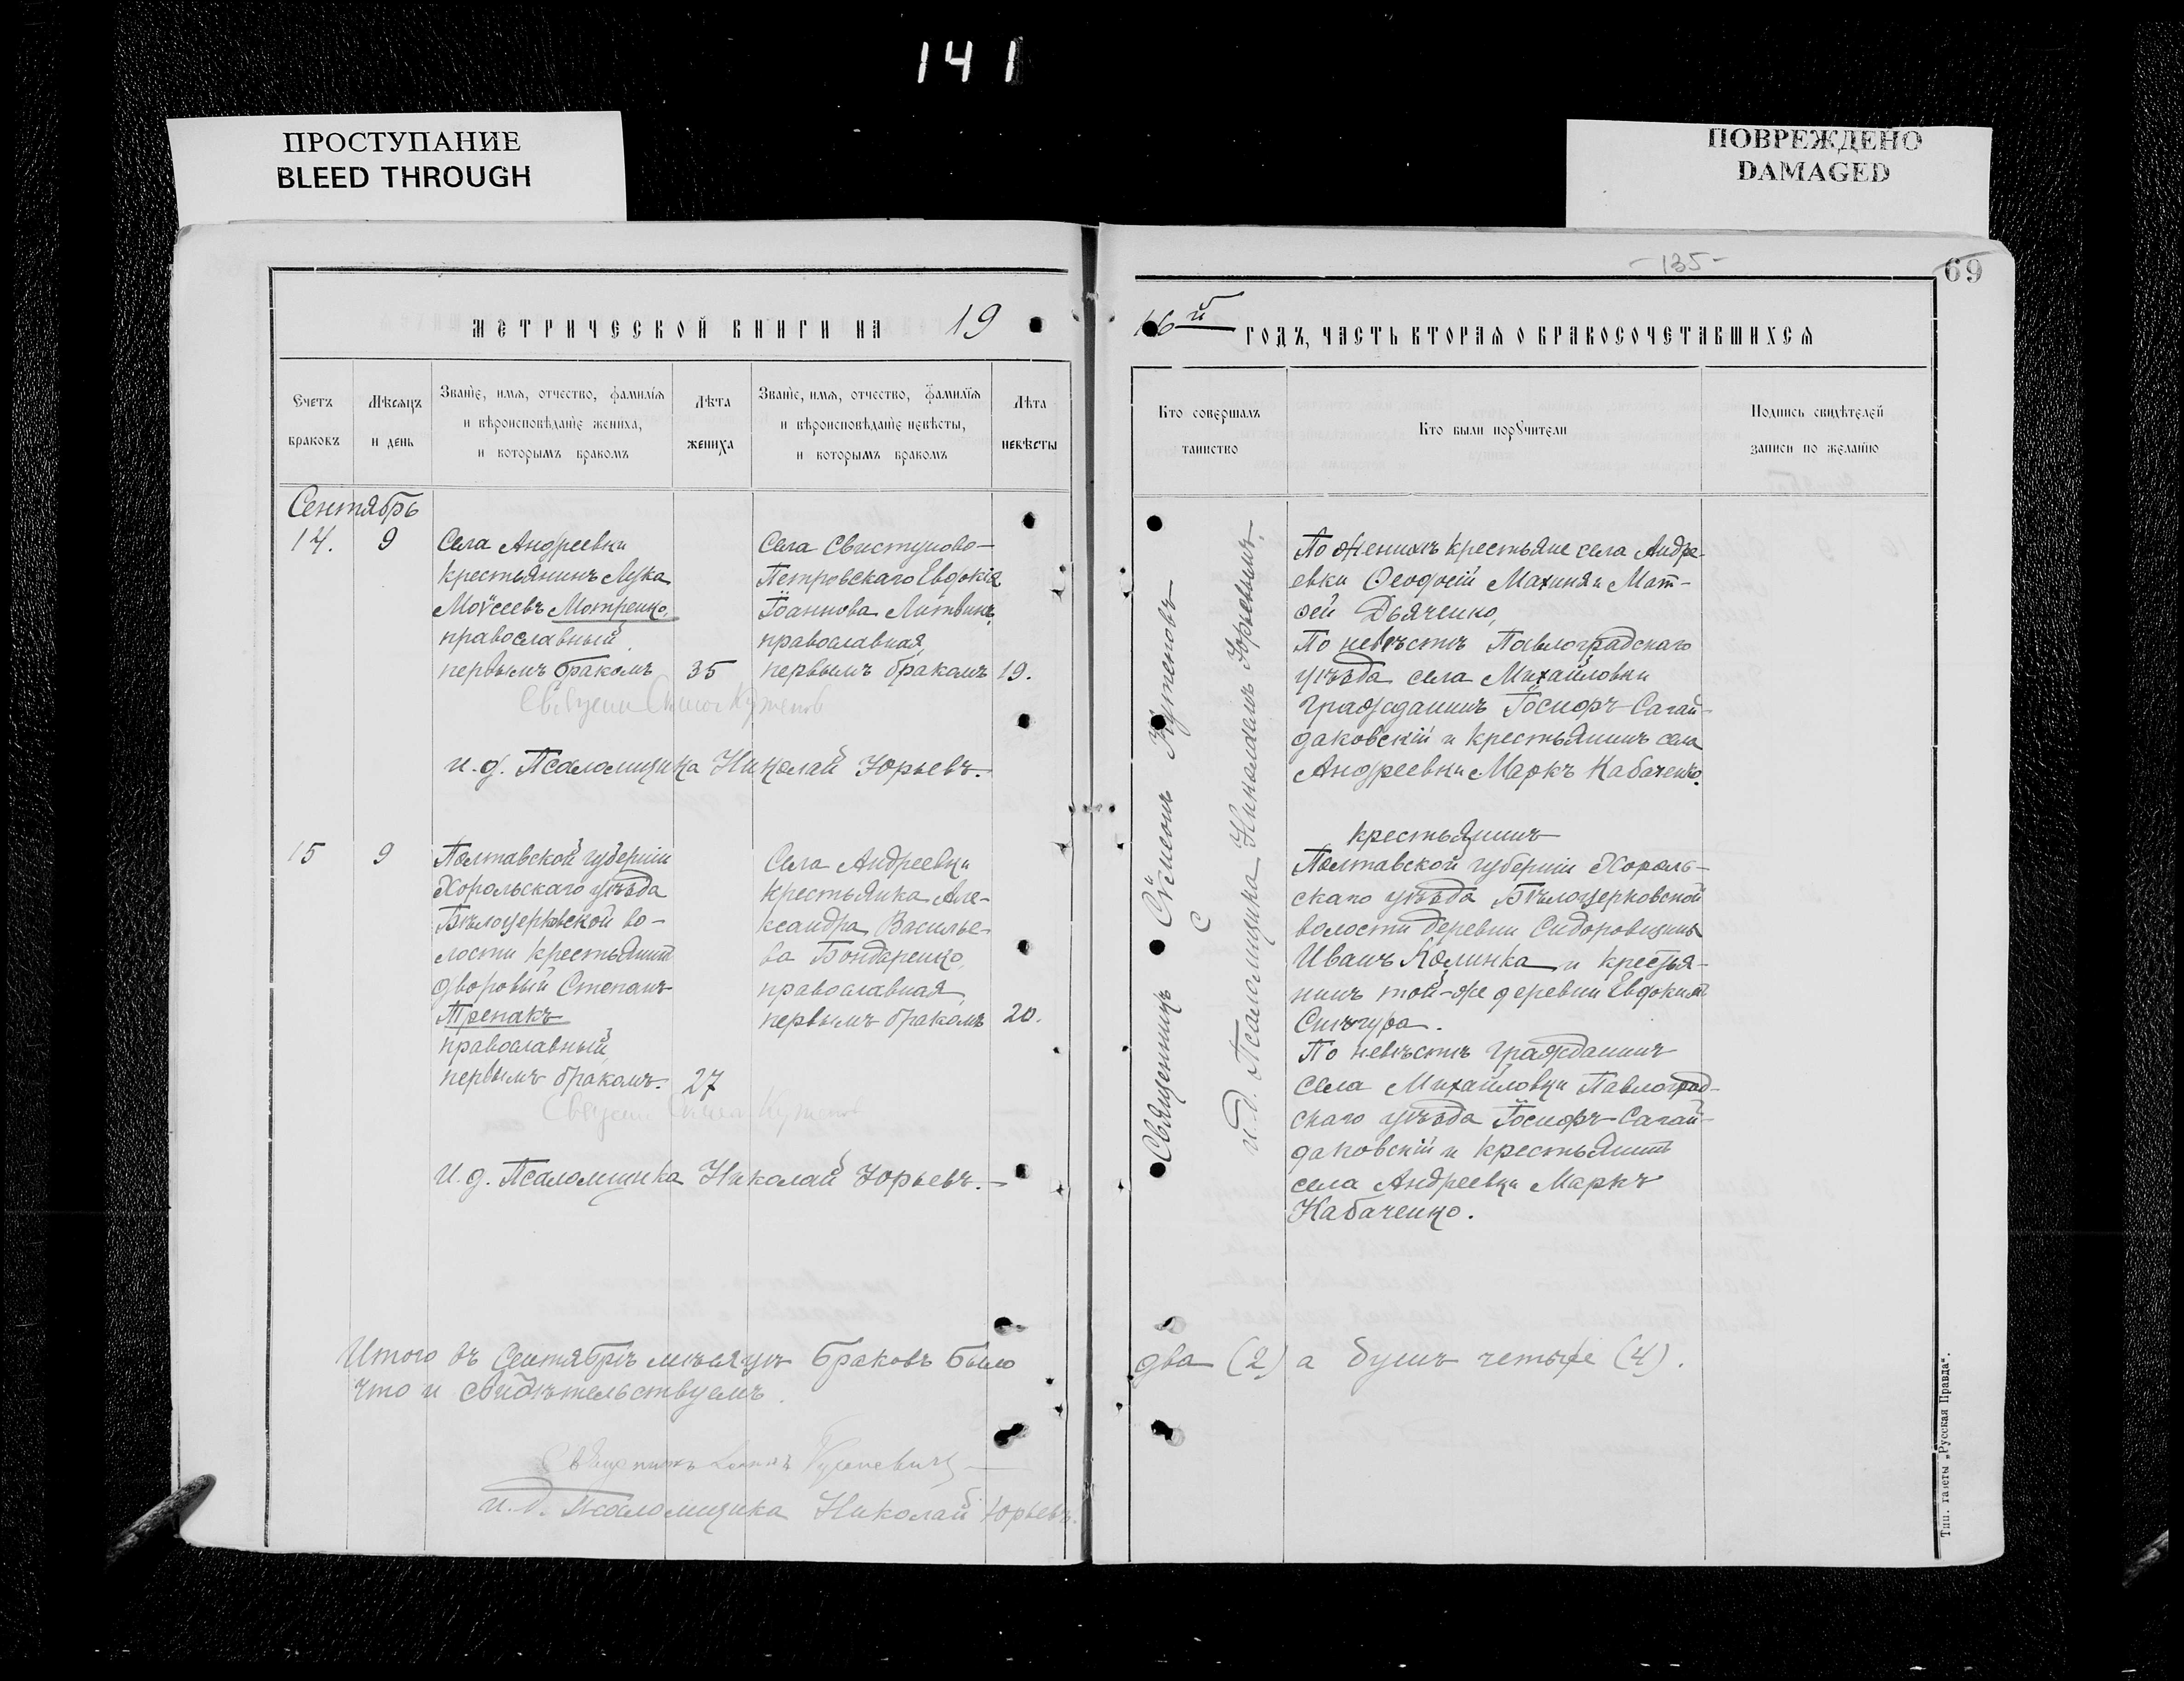 141
ПРОСТУПАНИЕ
BLEED THROUGH
ПОВРЕЖДЕНО
DAMAGED
-135-
69
МЕТРИЧЕСКОЙ КНИГИ НА 19
16й ГОДЪ, ЧАСТЬ ВТОРАЯ О БРАКОСОЧЕТАВШИХСЯ
Счетъ браковъ
Мѣсяцъ и день
Званіе, имя, отчество, фамилія
и вѣроисповѣданіе жениха,
и которымъ бракомъ
Лѣта жениха
Званіе, имя, отчество, фамилія
и вѣроисповѣданіе невѣсты,
и которымъ бракомъ
Лѣта невѣсты
Кто совершалъ таинство
Кто были поручители
Подпись свидѣтелей
записи по желанію
Сентябрь
14.
9
Села Андреевки
крестьянинъ Лука
Моѵсеевъ Мотренко,
православный,
первымъ бракомъ
35
Села Свистуново-
Петровскаго Евдокія
Іоаннова Литвинъ,
православная,
первымъ бракомъ
19.
и. д. Псаломщика Николай Юрьевъ.
По женихѣ крестьяне села Андре-
евки Ѳеодосій Махиня и Мат-
ѳей Дьяченко,
По невѣстѣ Павлоградскаго
уѣзда села Михайловки
гражданинъ Іосифъ Сагай-
даковскій и крестьянинъ села
Андреевки Маркъ Кабаченко.
15
9
Полтавской губерніи
Хорольскаго уѣзда
Бѣлоцерковской во-
лости крестьянинъ
дворовый Степанъ
Трепакъ
православный,
первымъ бракомъ.
27
Села Андреевки
крестьянка Але-
ксандра Василье-
ва Бондаренко,
православная,
первымъ бракомъ
20.
И. д. Псаломщика Николай Юрьевъ.
крестьянинъ
Полтавской губерніи Хороль-
скаго уѣзда Бѣлоцерковской
волости деревни Сидоровщины
Иванъ Калинка и крестья-
нинъ той-же деревни Евдокимъ
По невѣстѣ гражданинъ
села Михайловки Павлоград-
скаго уѣзда Іосифъ Сагай-
даковскій и крестьянинъ
села Андреевки Маркъ
Кабаченко.
Священникъ Сѵмеонъ
и. д. Псаломщика Николай Юрьевъ.
Итого въ Сентябрѣ мѣсяцѣ браковъ было два (2) а душъ четыре (4).
что и свидѣтельствуемъ.
Священникъ
и. д. Псаломщика Николай Юрьевъ.
Тип. газеты „Русская Правда".